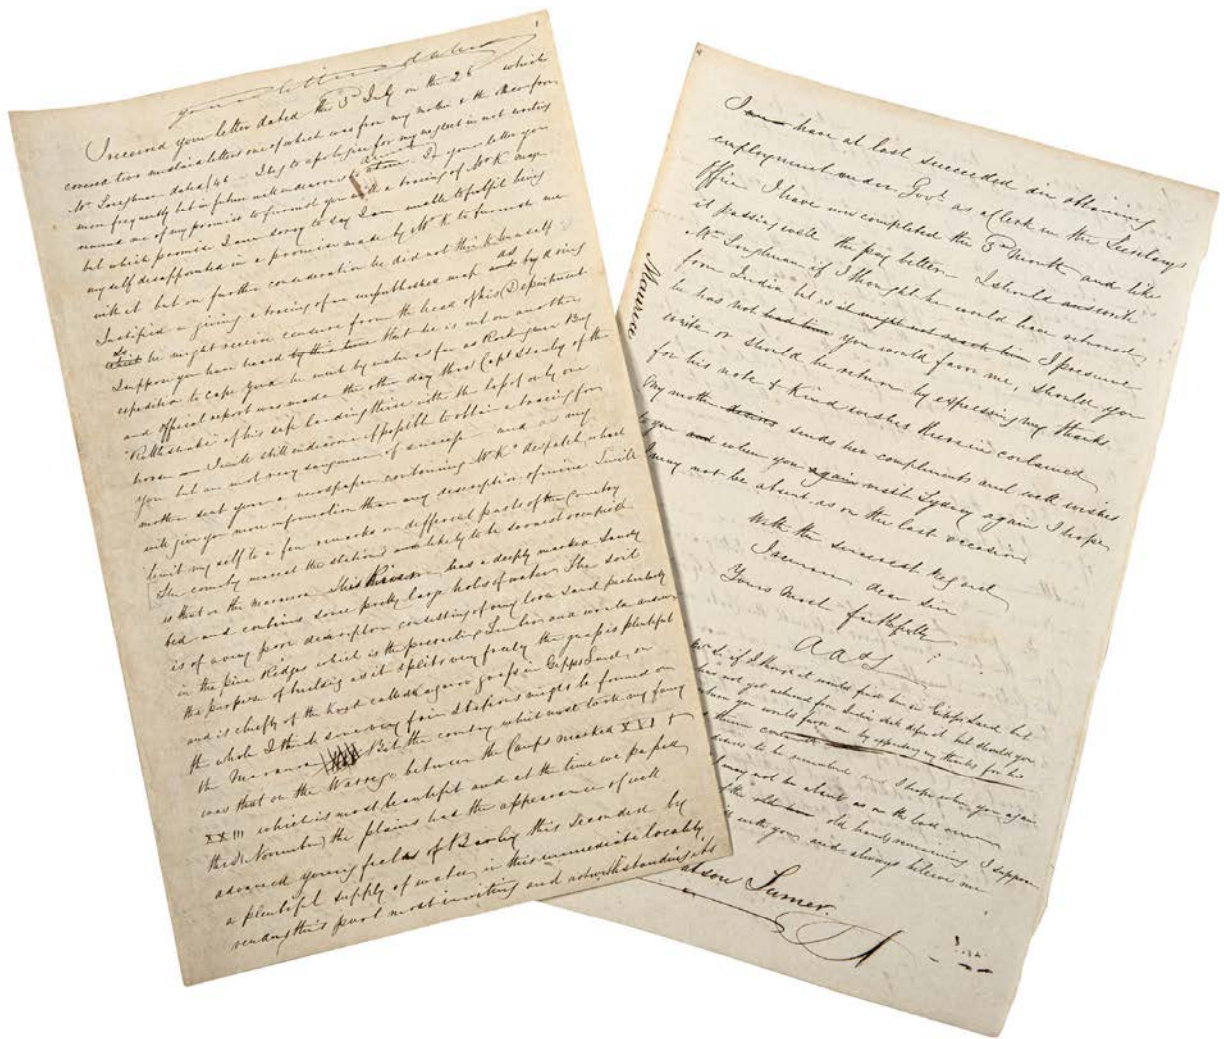 your letter dated
I received your letter dated the 3d July on the 26 which
contained two enclosed letters one of which was from my mother & the other from
Mr Loughnan dated 46 I beg to apologize for my neglect in not writing
more frequently but in future will endeavour to In your letter you
remind me of my promise to furnish you with a tracing of Mr K map
but which promise I am sorry to say I am unable to fulfil being
myself disappointed in a promise made by Mr K to furnish me
with it but on further consideration he did not think himself
Justified in giving a tracing of an unpublished map as by doing
so he might receive censure from the head of his Department
I suppose you have heard by this time that he is out on another
expedition to Cape York he went by water as far as Rockingham Bay
and official report was made the other day thro Capt Stanley of the
Rattlesnake of his safe landing there with the loss of only one
horse I will still endeavour if possible to obtain a tracing for
you but am not very sanguine of success and as my
mother sent you a newspaper containing Mr Ks despatch, which
will give you more information than any description of mine I will
limit myself to a few remarks on different parts of the Country
The country nearest the stations and likely to be soonest occupied
is that on the Maranoa This River has a deeply marked Sandy
bed and contains some pretty large holes of water The soil
is of a very poor description consisting of very loose Sand particularly
in the pine Ridges which is the prevailing Timber and would answer
the purpose of building as it splits very freely the grass is plentiful
and is chiefly of the kind called Kangaroo grass in Gipps Land, on
the whole I think some very fair Stations might be formed on
the Maranoa But the country which most took my fancy
was that on the Warrego between the Camps marked XVI &
XXIII which is most beautiful and at the time we passed
the November the plains had the appearance of well
advanced young fields of Barley this seconded by
a plentiful supply of water in this immediate locality,
renders this part most inviting and notwithstanding its
I have at last succeeded in obtaining
employment under Govt as a Clerk in the Surveyors
Office I have now completed the 3d Month and like
it passing well the pay better I should
Mr Loughnan if I thought he would have returned
from India but as it might not reach him I presume
he has not had time you would favor me, should you
write or should he return by expressing my thanks
for his note & Kind wishes therein contained
My mother desires sends her compliments and well wishes
to you and when you again visit Sydney again I hope
I may not be absent as on the last occasion
With the sincerest regard
I remain dear Sir
Yours most faithfully
Maranoa
if I thought it would find him in Gipps Land but
has not yet returned from India
you would favor me by expressing my thanks for his
therein contained
desires to be remembered and I hope when you again
I may not be absent as on the last occasion
of the old old hands remaining I suppose
with you and always believe me
Turner.